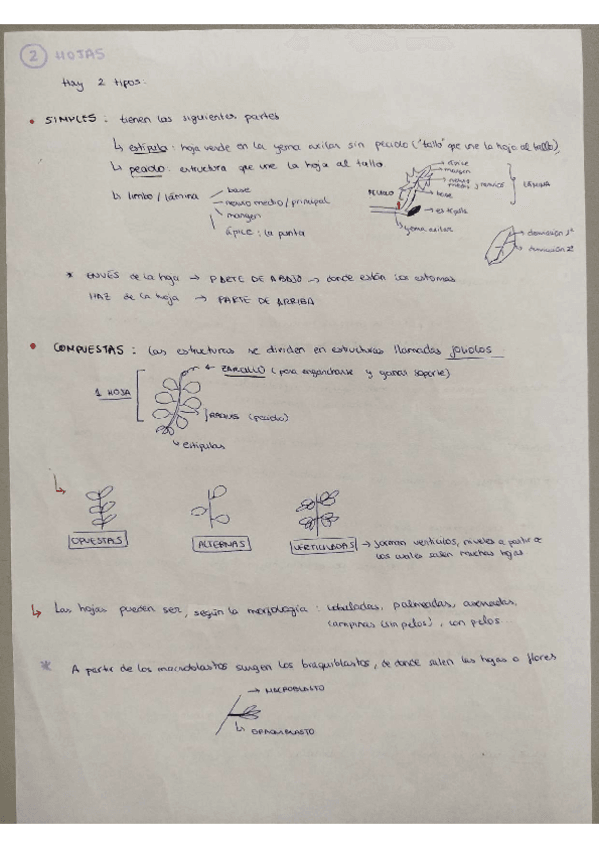 2 HOJAS
Hay 2 tipos:
• SIMPLES: tienen las siguientes partes
↳ estípula: hoja verde en la yema axilar sin peciolo ("tallo" que une la hoja al tallo)
↳ peciolo: estructura que une la hoja al tallo
↳ limbo / lámina
base
nervio medio / principal
margen
ápice: la punta
ápice
margen
nervio medio y nervios
base
LÁMINA
PECIOLO
estípula
yema axilar
dominación 1ª
dominación 2ª
* ENVÉS de la hoja → PARTE DE ABAJO → donde están los estomas
HAZ de la hoja → PARTE DE ARRIBA
• COMPUESTAS: las estructuras se dividen en estructuras llamadas foliolos
← ZARCILLO (para engancharse y ganar soporte)
1 HOJA
RAQUIS (peciolo)
↳ estípulas
OPUESTAS
ALTERNAS
VERTICILADAS → forman verticilos, niveles a partir de
los cuales salen muchas hojas
↳ Las hojas pueden ser, según la morfología: lobuladas, palmeadas, aserradas,
(sin pelos), con pelos.
* A partir de los macroblastos surgen los braquiblastos, de donde salen las hojas o flores
→ MACROBLASTO
↳ BRAQUIBLASTO